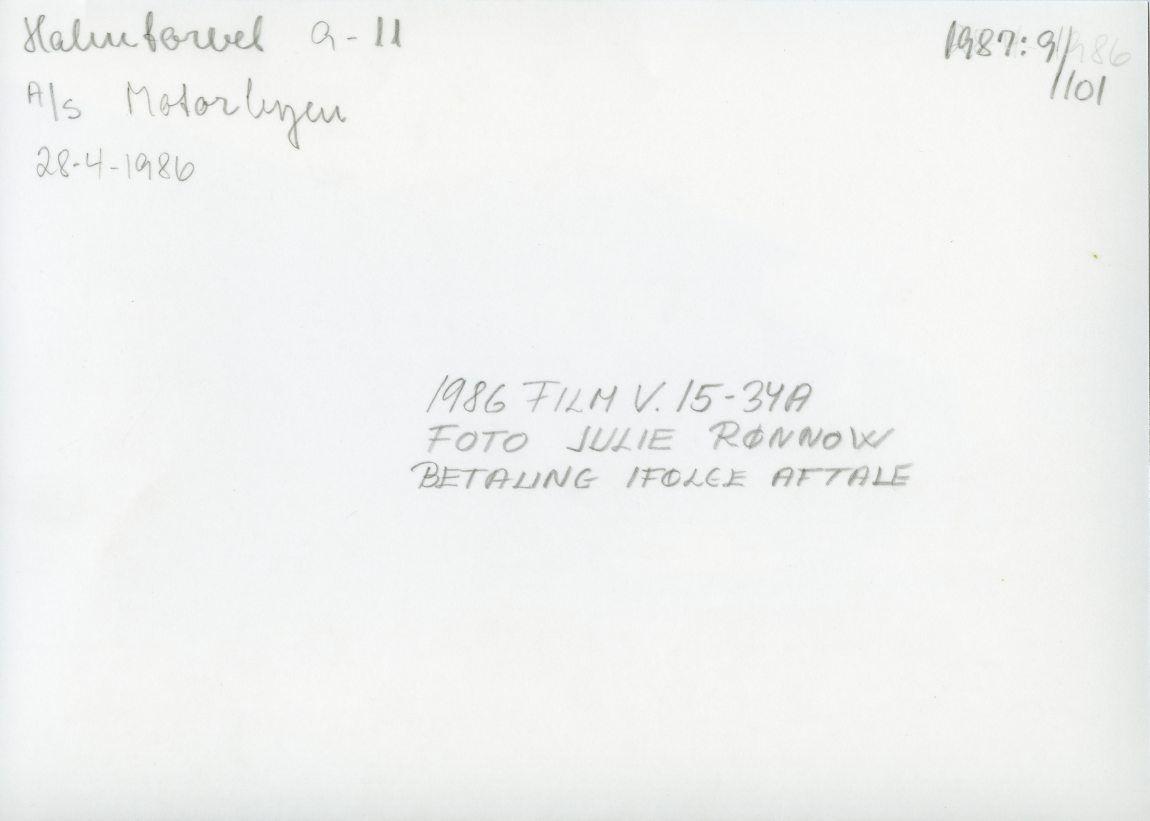 Halmtorvet 9-11
A/S Motorbyen
28-4-1986
1987:9/
/101
1986 FILM V. 15-34A
FOTO JULIE RØNNOW
BETALING IFØLGE AFTALE